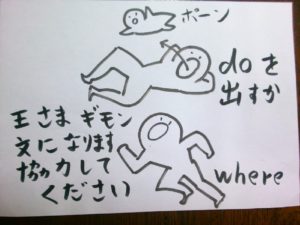 ポーン
doを
出すか
王さま ギモン
文になります
協力して
ください
where